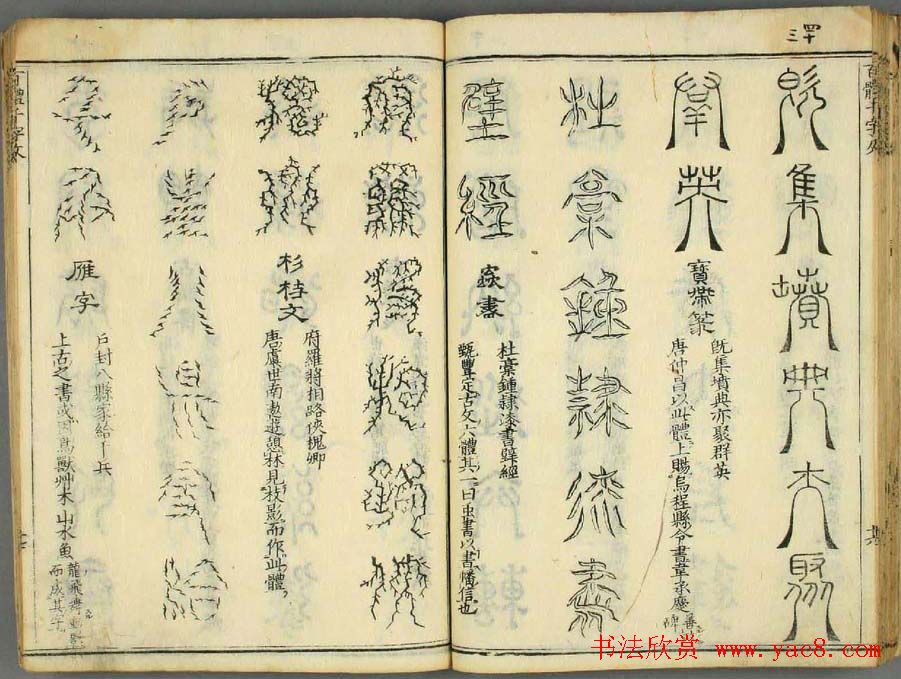 百體千字文
既集墳典亦聚
群英
寶帶篆
既集墳典亦聚群英
唐仲昌以此體上賜烏程縣令書韋承慶
碑
杜稾鍾隸漆書
壁經
書
杜稾鍾隸漆書壁經
甄豐定古文六體其一曰虫書以書幡信也
府羅將相路俠
槐卿
杉桂文
府羅將相路俠槐卿
唐虞世南遨遊憩林見枝影而作此體
戶封八縣家給
千兵
雁字
戶封八縣家給千兵
上古之書或因鳥獸艸木山水魚
龍飛舞
而成其字
百體千字文
书法欣赏 www.yac8.com